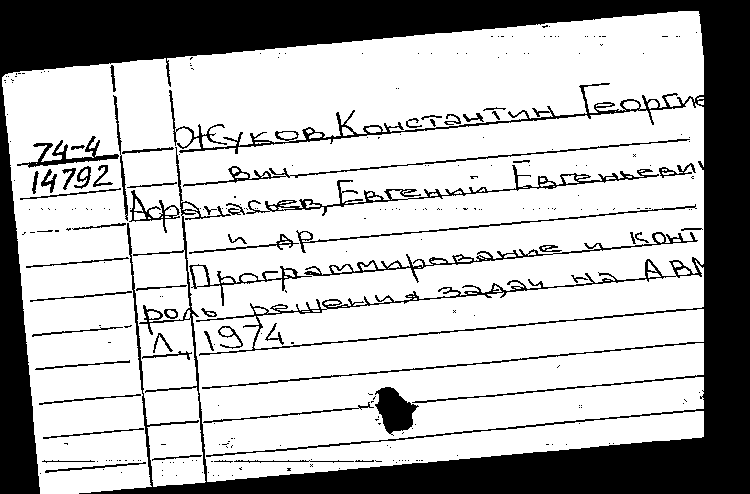 74-4
14792
Жуков, Константин Георгие
вич.
Афанасьев, Евгений Евгеньевич
и др
Программирование и конт
роль решения задач на АВМ
Л., 1974.